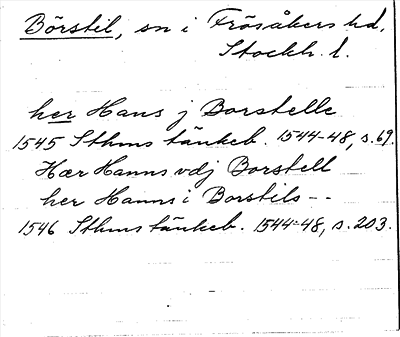 Börstil, sn i Frösåkers hd,
Stockh. l.
her Hans j Borstelle
1545 Sthms tänkeb. 1544-48, s. 69.
Hær Hanns vdj Borstell
her Hanns i Borstils --
1546 Sthms tänkeb. 1544-48, s. 203.